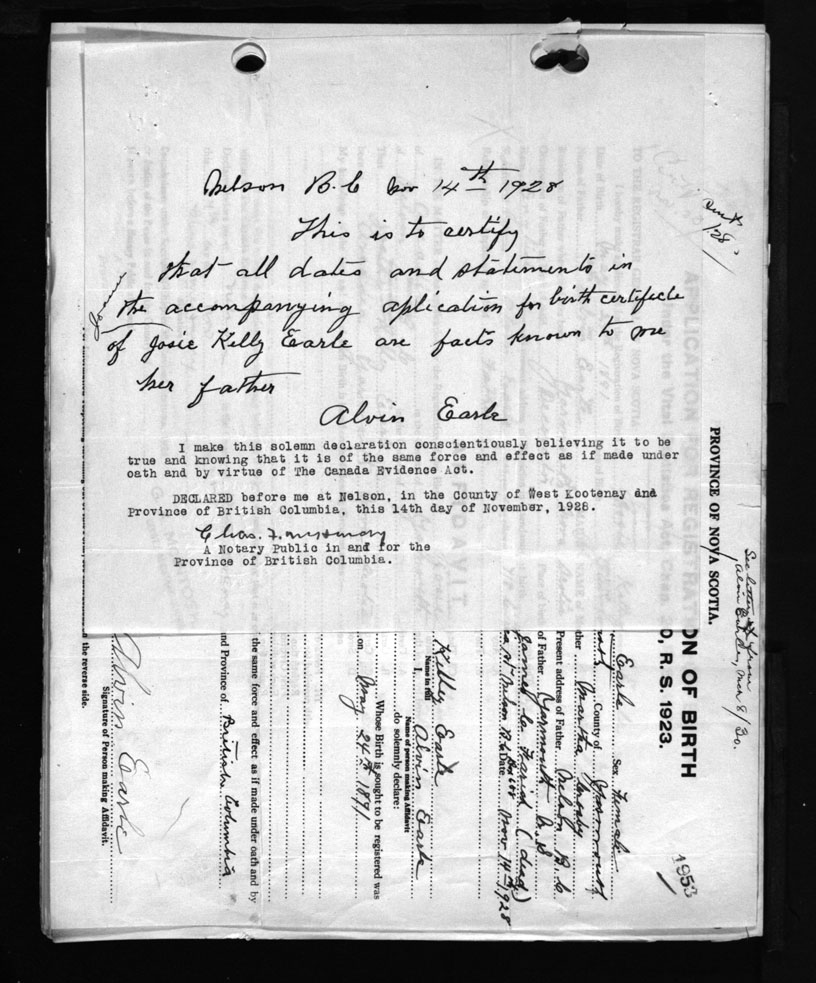 Nelson B.C Nov 14th 1928
This is to certify
that all dates and statements in
the accompanying aplication for birth certificte
of Josie Kelly Earle are facts known to me
her father
Alvin Earle
I make this solemn declaration conscientiously believing it to be
true and knowing that it is of the same force and effect as if made under
oath and by virtue of The Canada Evidence Act.
DECLARED before me at Nelson, in the County of West Kootenay and
Province of British Columbia, this 14th day of November, 1928.
A Notary Public in and for the
Province of British Columbia.
/28
See letter from
Alvin Earle, 8/30.
PROVINCE OF NOVA SCOTIA.
ON OF BIRTH
, R. S. 1923.
1953
Earle Sex Female
County of Yarmouth
ther Martha
Present address of Father Nelson B.C.
of Father Yarmouth N.S
(dead)
Nelson B.C. Date Nov 14th 1928
Kelly Earle
Name in full
I, Alvin Earle
Name of person making Affidavit
do solemnly declare:
Whose Birth is sought to be registered was
on May 24th 1891
the same force and effect as if made under oath and by
nd Province of British Columbia
Alvin Earle
Signature of Person making Affidavit.
the reverse side.